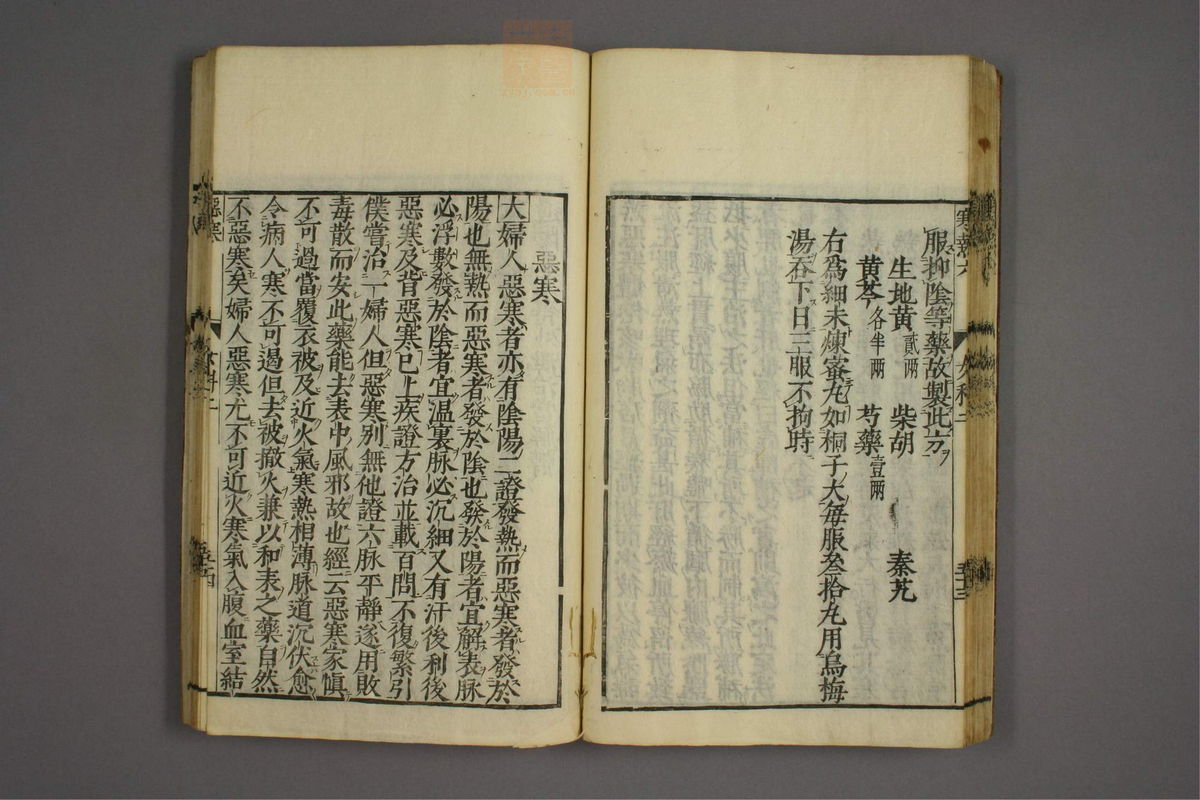 服抑陰等藥故製此方
生地黄貳兩 柴胡 秦艽
黄芩各半兩 芍藥壹兩
右爲細末煉蜜丸如桐子大每服叁拾丸用烏梅
湯吞下日三服不拘時
惡寒
大婦人惡寒者亦有陰陽二證發熱而惡寒者發於
陽也無熱而惡寒者發於陰也發於陽者宜解表脉
必浮數發於陰者宜温裏脉必沉細又有汗後利後
惡寒及背惡寒已上疾證方治並載百問不復繁引
僕嘗治一婦人但惡寒別無他證六脉平靜遂用敗
毒散而安此藥能去表中風邪故也經云惡寒家愼
不可過當覆衣被及近火氣寒熱相薄脉道沉伏愈
令病人寒不可遏但去被撤火兼以和表之藥自然
不惡寒矣婦人惡寒尤不可近火寒氣入腹血室結